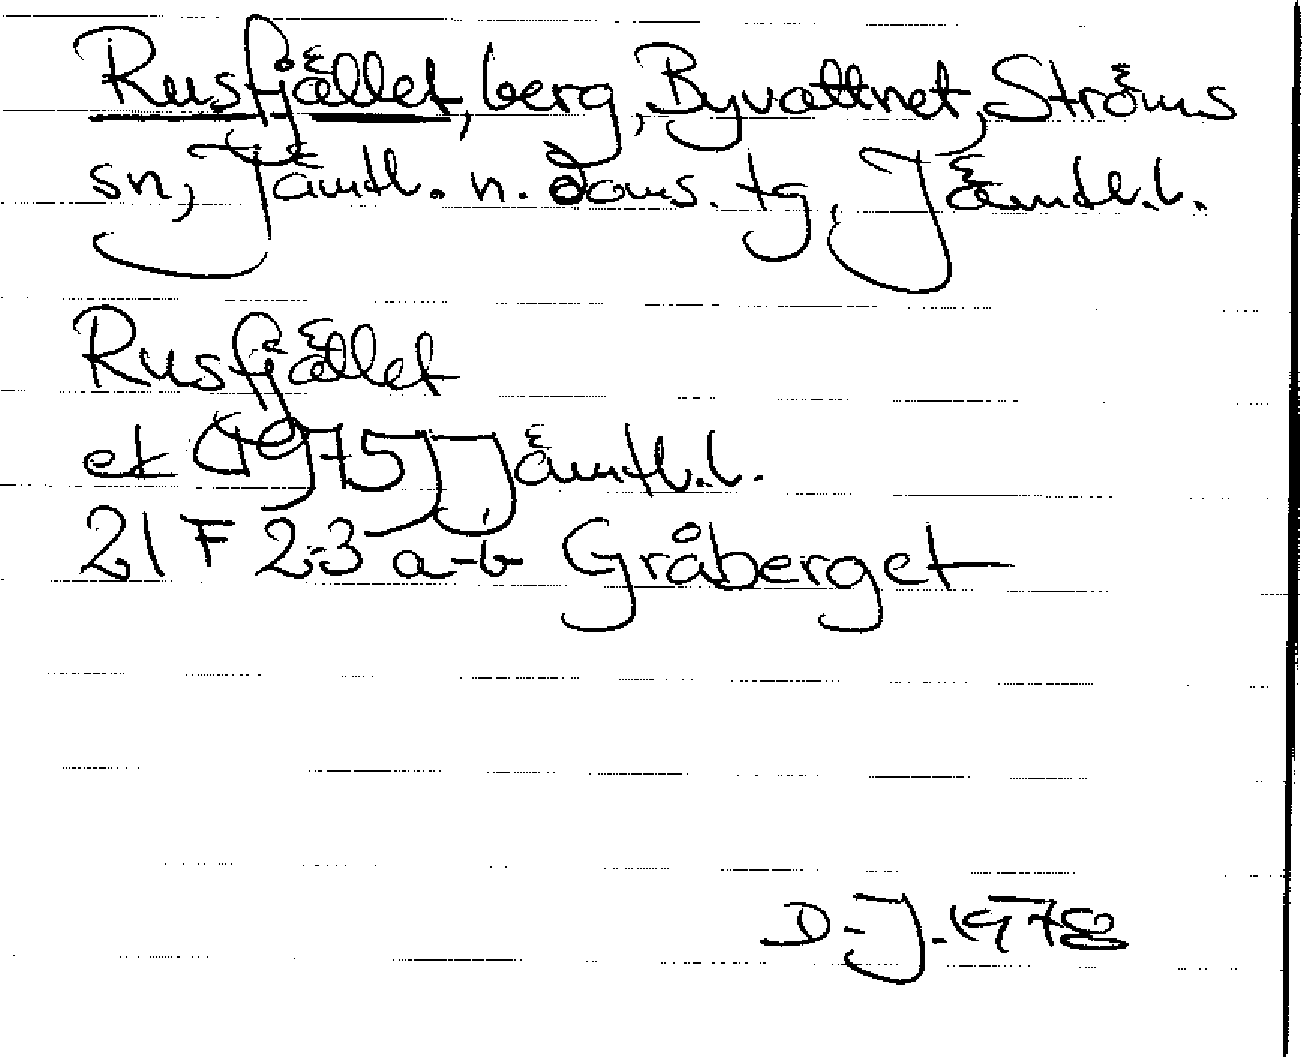 Rusfjället, berg, Byvattnet, Ströms
sn, Jämtl. n. doms. tg, Jämtl.l.
Rusfjället
ek 1975 Jämtl.l.
21 F 2-3 a-b Gråberget
D-J. 1978